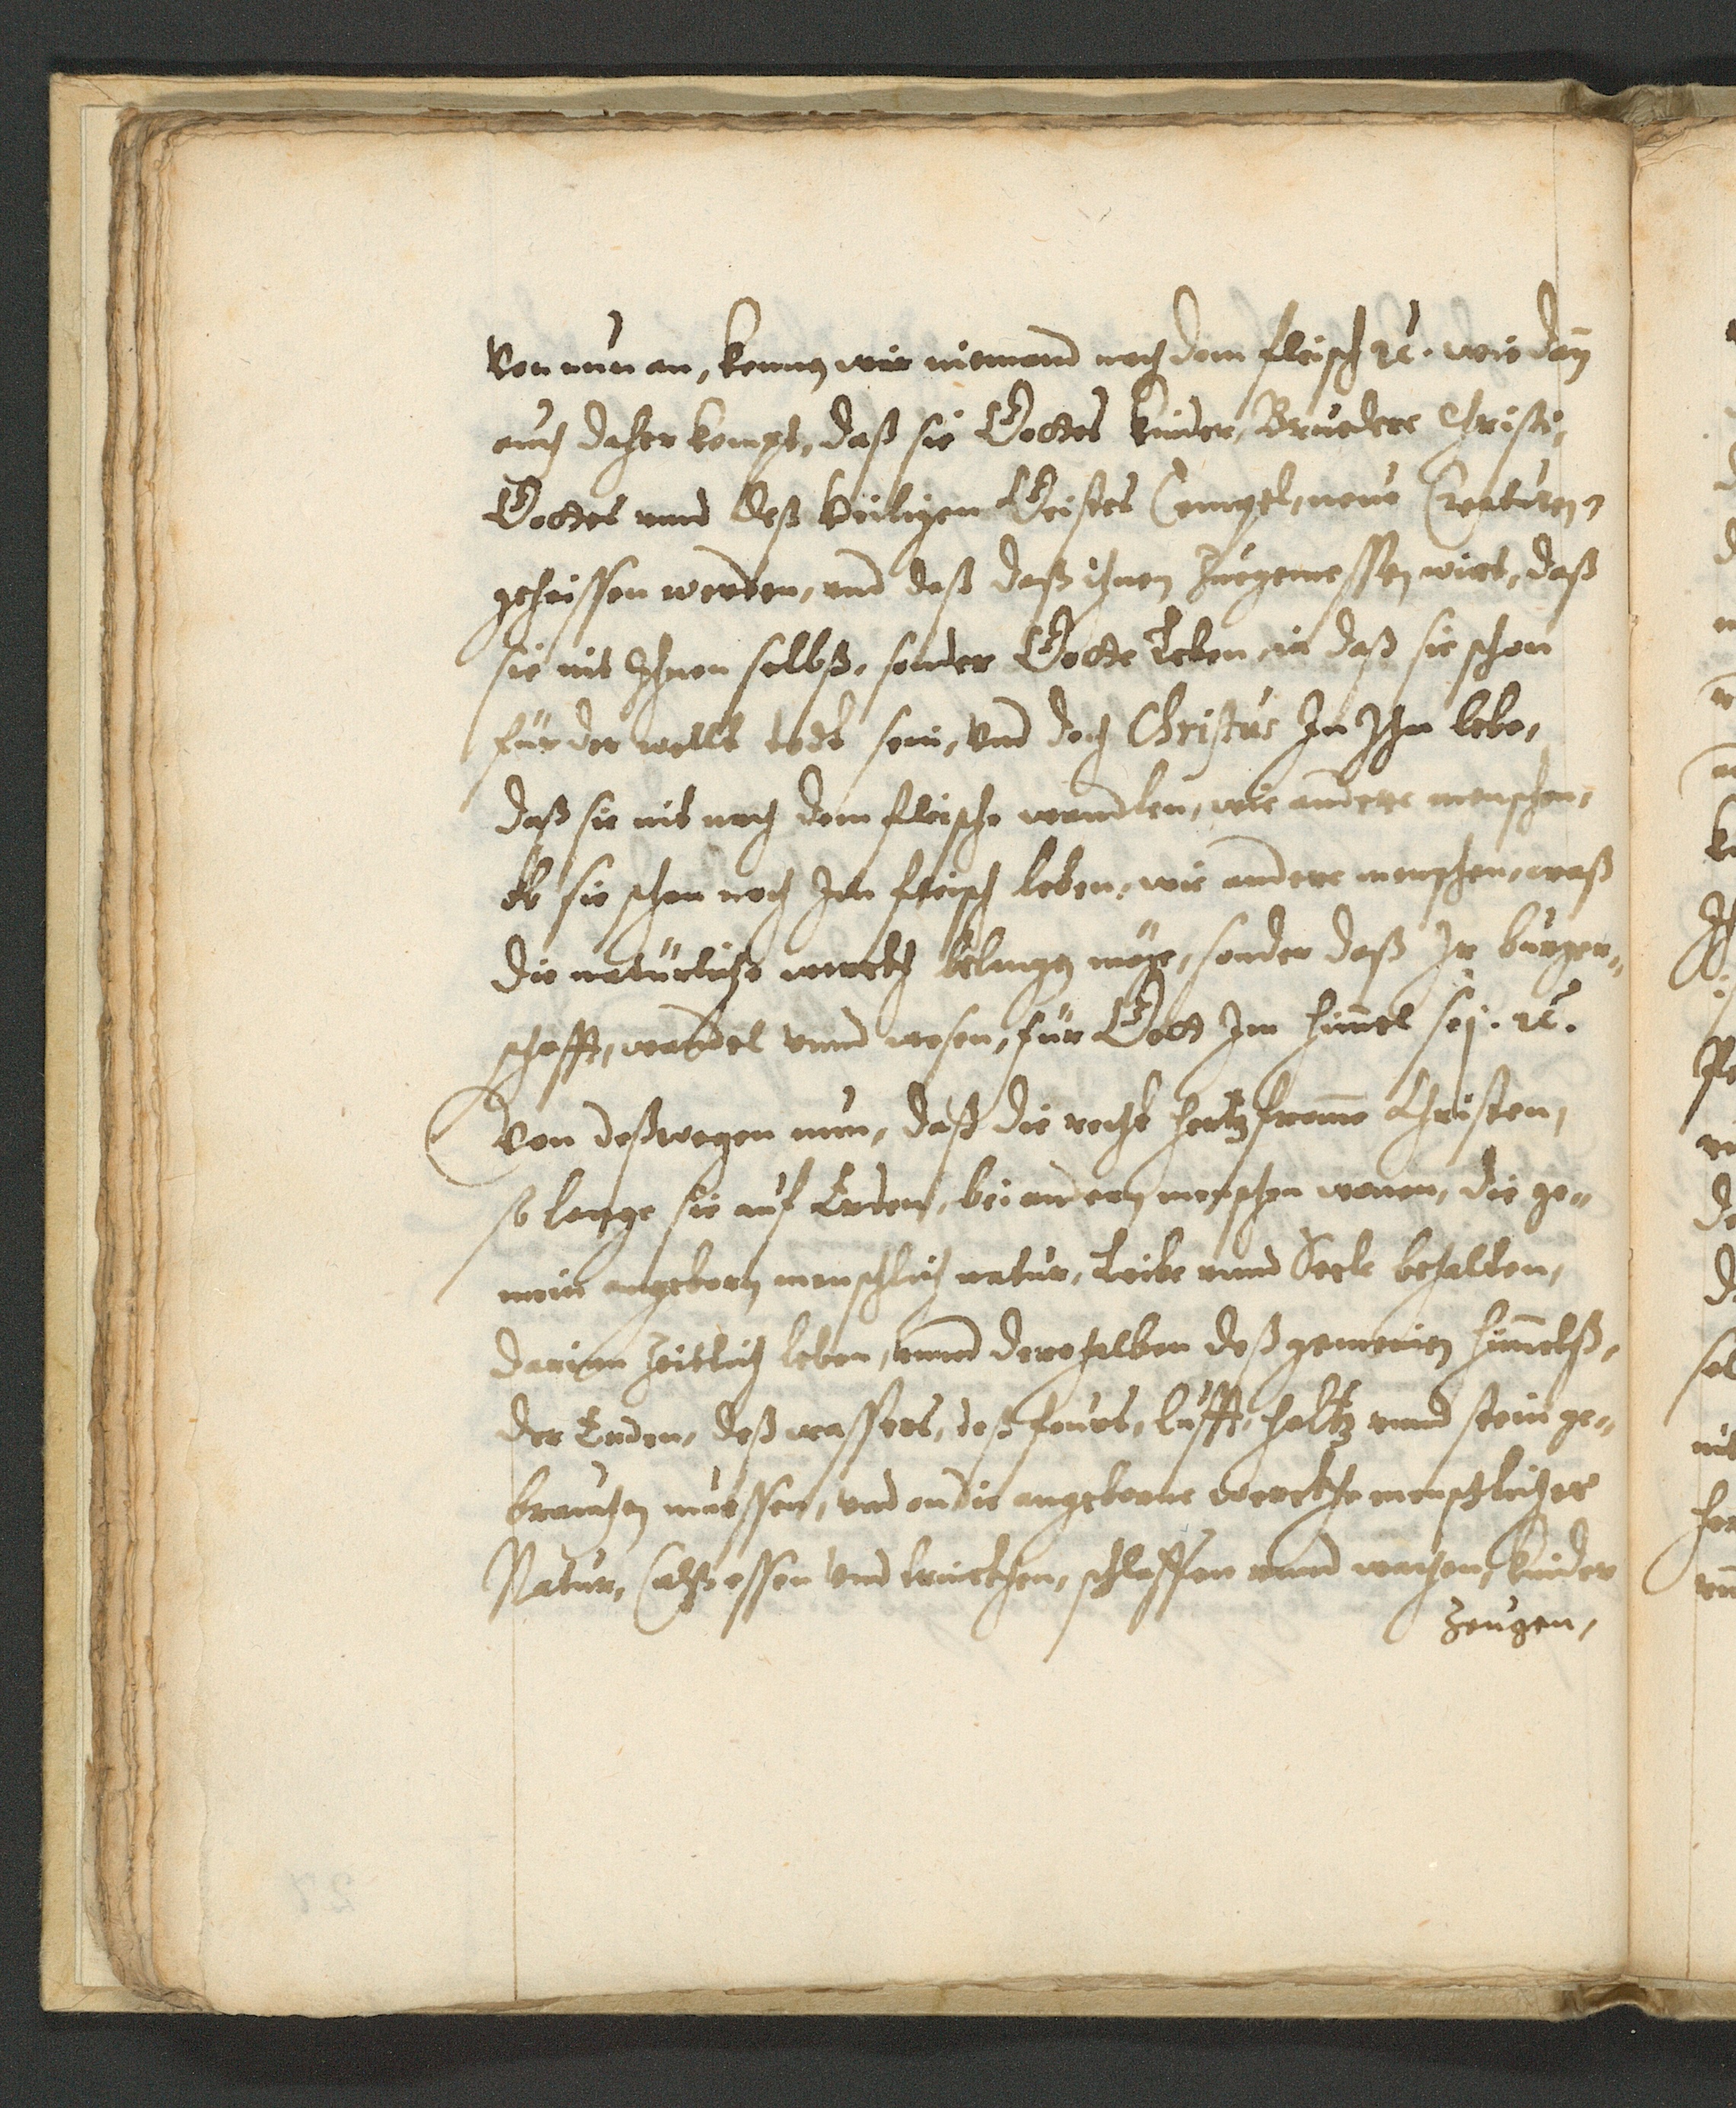 Von nun an, kennen wir niemand nach dem fleisch ꝛc. wie dan̄
auch daher kompt, daß sie Gottes kinder, Bruedere Christi,
Gottes vnnd deß heiligen Geistes Tempel, neue Creaturen,
geheissen werden, vnd daß daß ihnen zugemessen wirt, daß
sie nit Ihnen selbß, sonder Gotte Leben, ia daß sie schon
für der wellt todt sein, vnd doch Christus In Ihn lebe,
daß sie nit nach dem fleische wandlen, wie andere menschen,
ob sie schon noch Im fleisch leben, wie andere menschen, waß
die natürliche werckh belangen möge, sonder daß Ir burger„
schafft, wandel vnnd wesen, für Gott Im him̄el seÿ. ꝛc.
Von deßwegen nun, daß die recht hertzfrom̄e Christen,
so lange sie auf Erden, bei andern menschen wonen, die ge„
mein angeborn menschlich natur, Leibe vnnd Seele behalten,
darinn zeitlich leben, vnnd derohalben deß gemeinen him̄elß,
der Erden, deß wassers, deß feurs, lufft, holtz vnnd stein ge„
brauchen muessen, vnd on die angeborne werckhe menschlicher
Natur, (alß essen vnd trinckhen, schlaffen vnnd wachen, kinder
zeugen,